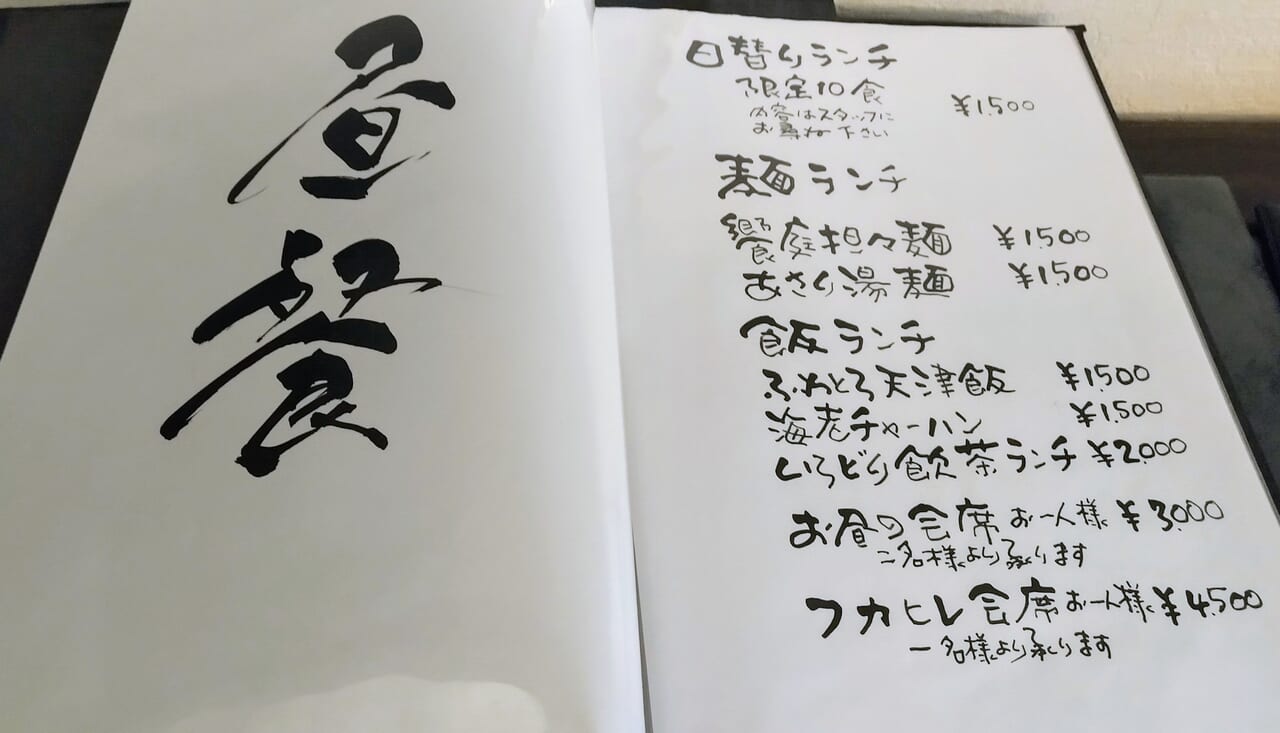 昼
餐
日替りランチ
限定10食 ¥1,500
内容はスタッフに
お尋ね下さい
麺ランチ
饗庭担々麺 ¥1,500
あさり湯麺 ¥1,500
飯ランチ
ふわとろ天津飯 ¥1,500
海老チャーハン ¥1,500
いろどり飲茶ランチ ¥2,000
お昼の会席 お一人様 ¥3,000
二名様より承ります
フカヒレ会席 お一人様 ¥4,500
一名様より承ります